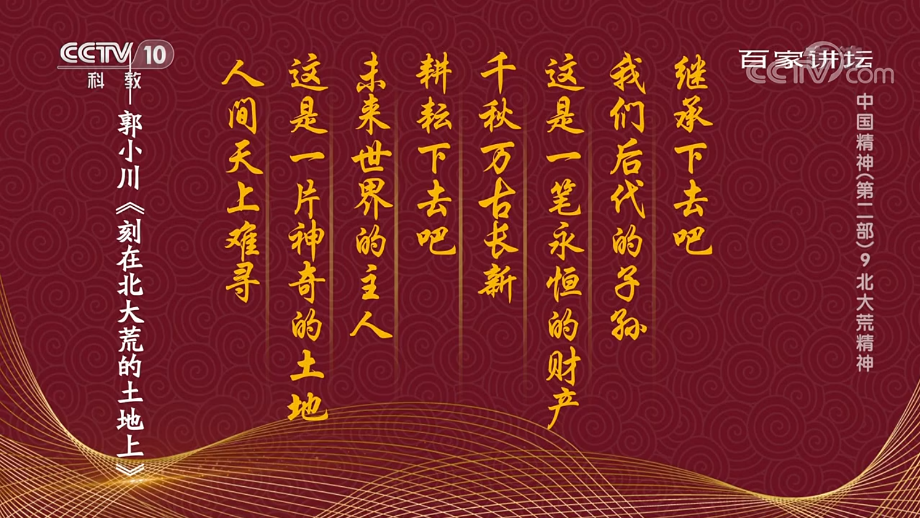 CCTV 10
科教
百家讲坛
CCTV.com
中国精神(第二部)9 北大荒精神
继承下去吧
我们后代的子孙
这是一笔永恒的财产
千秋万古长新
耕耘下去吧
未来世界的主人
这是一片神奇的土地
人间天上难寻
——郭小川《刻在北大荒的土地上》